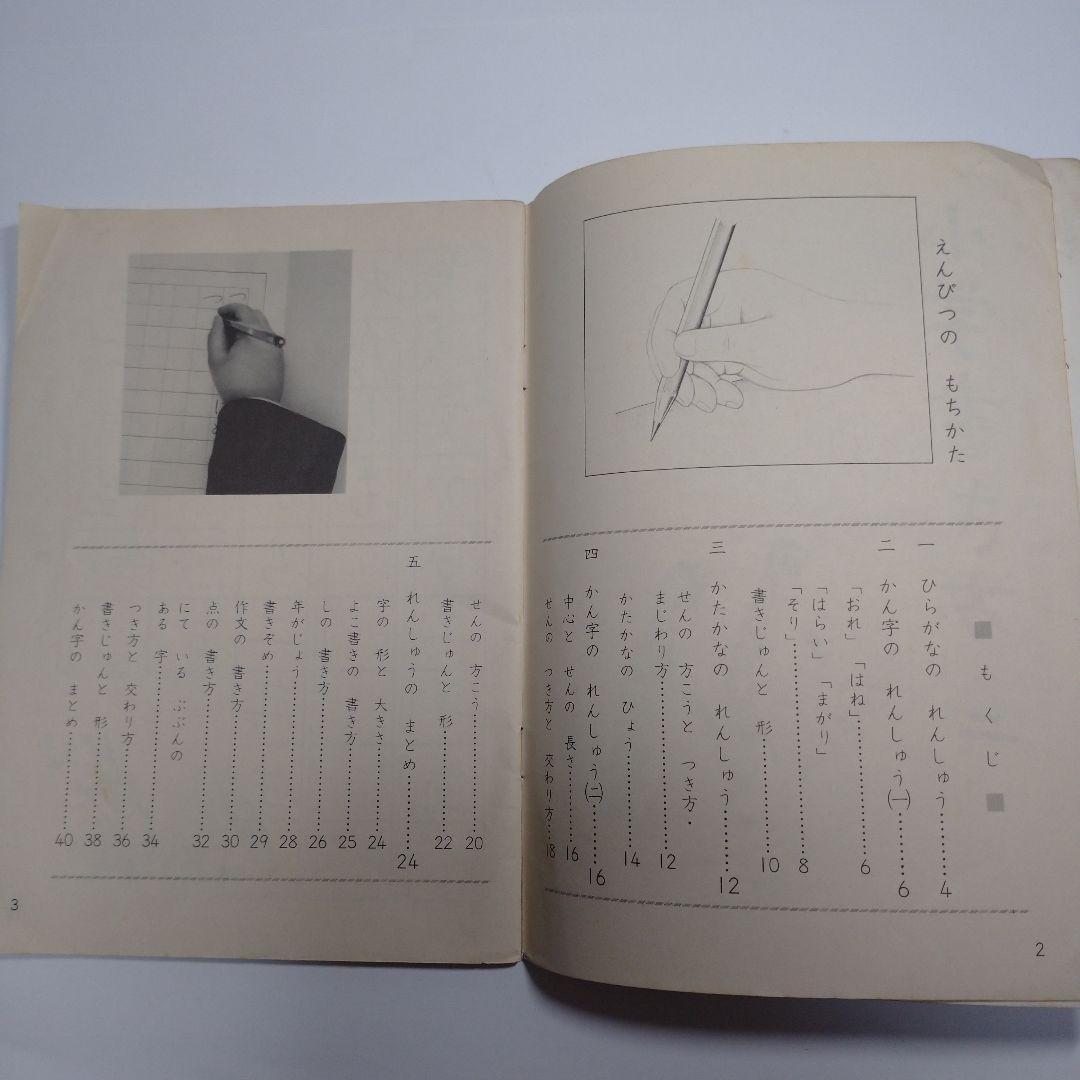 えんぴつの もちかた
もくじ
一 ひらがなの れんしゅう……4
二 かん字の れんしゅう(一)……6
「おれ」「はね」……6
「はらい」「まがり」
「そり」……8
書きじゅんと 形……10
三 かたかなの れんしゅう……12
せんの 方こうと つき方・
まじわり方……12
かたかなの ひょう……14
四 かん字の れんしゅう(二)……16
中心と せんの 長さ……16
せんの つき方と 交わり方……18
2
せんの 方こう……20
書きじゅんと 形……22
五 れんしゅうの まとめ……24
字の 形と 大きさ……24
よこ書きの 書き方……25
しの 書き方……26
年がじょう……28
書きぞめ……29
作文の 書き方……30
点の 書き方……32
にて いる ぶぶんの
ある 字……34
つき方と 交わり方……36
書きじゅんと 形……38
かん字の まとめ……40
3